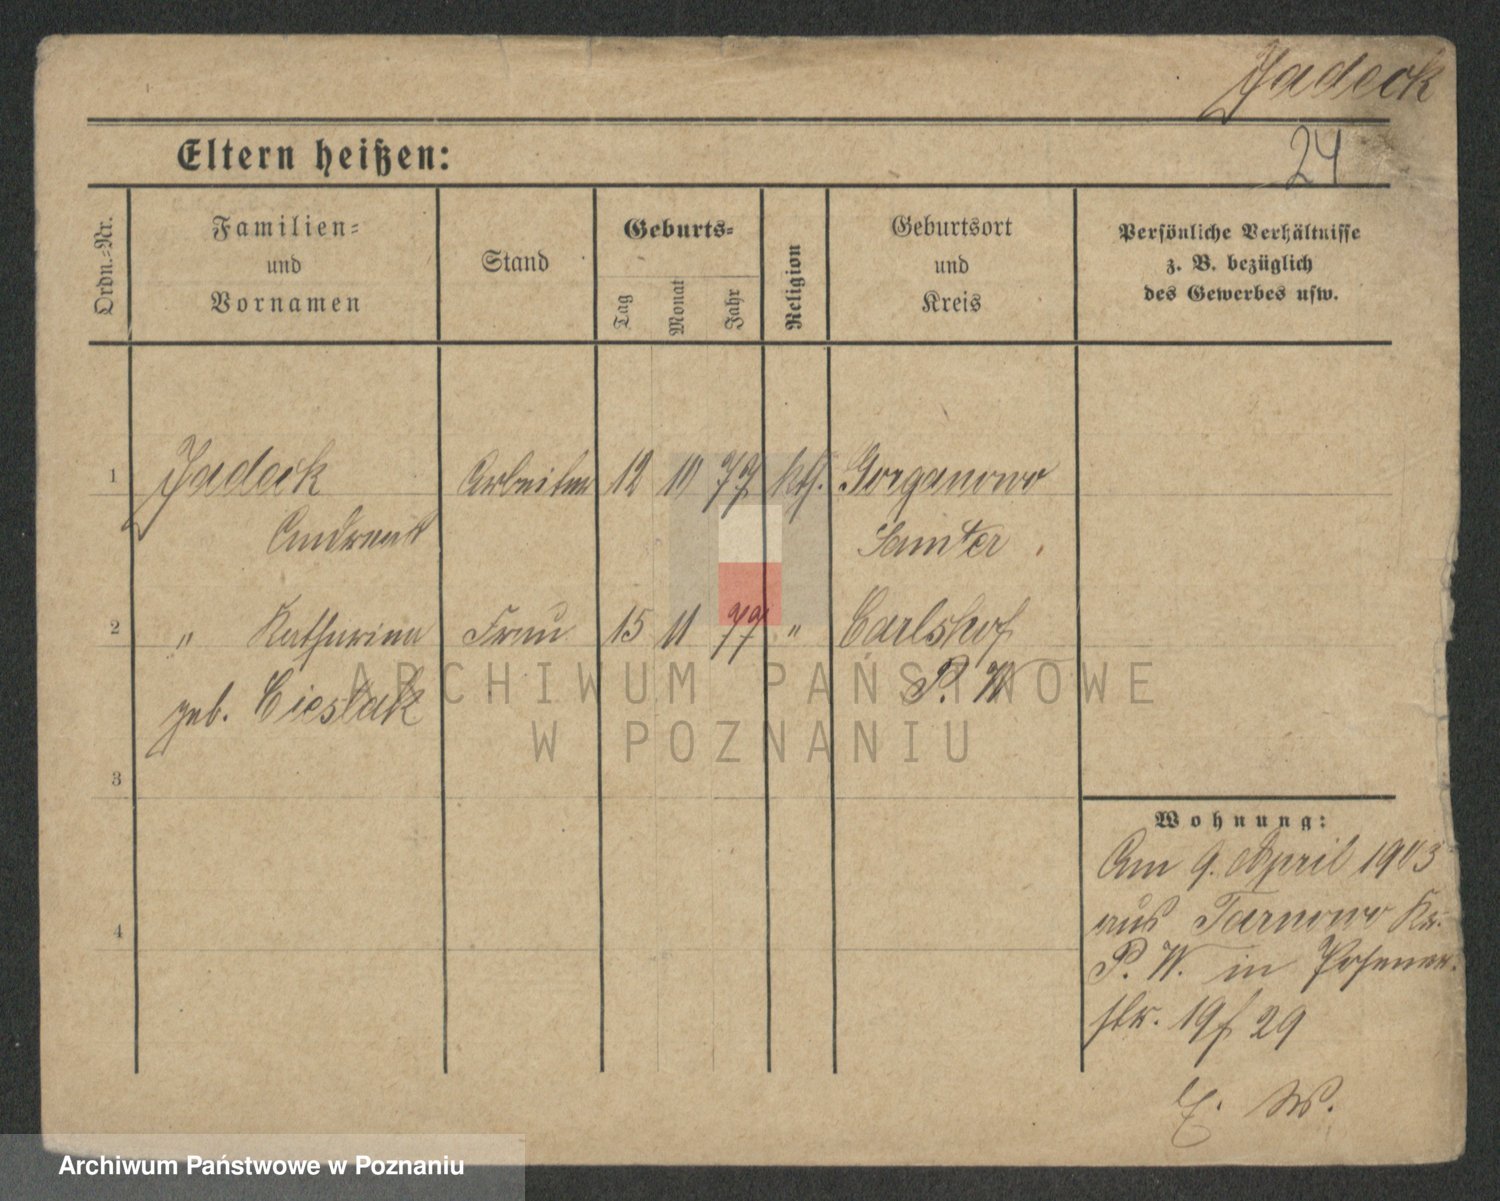 Jadeck
24
Eltern heißen:
Ordn.-Nr.
Familien-
und
Vornamen
Stand
Geburts-
Tag
Monat
Jahr
Religion
Geburtsort
und
Kreis
Persönliche Verhältnisse
z. B. bezüglich
des Gewerbes usw.
1 Jadeck Arbeiter 12 10 77 kth. Gorganowo
Andreas Samter
2 " Katharina Frau 15 11 77 " Carlshof
geb. Cieslak P. W
3
4
Wohnung:
Am 9. April 1903
aus Tarnowo Kr.
P. W. in Posener-
str. 19 f 29
E. W.
ARCHIWUM PAŃSTWOWE
W POZNANIU
Archiwum Państwowe w Poznaniu